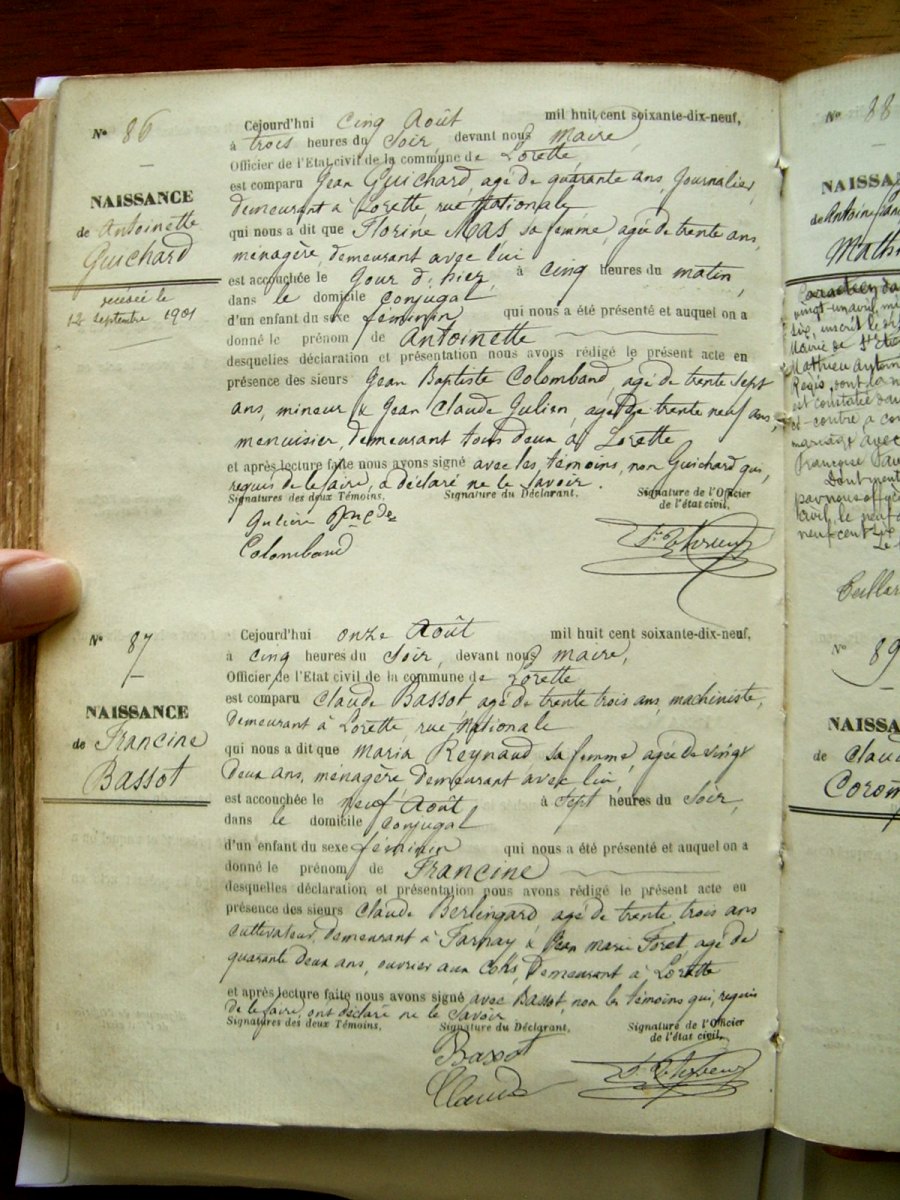 N° 86
NAISSANCE
de Antoinette
Guichard
décédée le
12 septembre 1901
Cejourd'hui cinq Août mil huit cent soixante-dix-neuf,
à trois heures du Soir, devant nous Maire,
Officier de l'Etat civil de la commune de Lorette
est comparu Jean Guichard, agé de quarante ans, Journalier,
demeurant à Lorette, rue Nationale
qui nous a dit que Florine Mas sa femme, agée de trente ans,
ménagère, demeurant avec lui
est accouchée le Jour d'hier, à cinq heures du matin,
dans le domicile conjugal
d'un enfant du sexe féminin qui nous a été présenté et auquel on a
donné le prénom de Antoinette
desquelles déclaration et présentation nous avons rédigé le présent acte en
présence des sieurs Jean Baptiste Colomband, agé de trente sept
ans, mineur & Jean Claude Julien, agé de trente neuf ans,
menuisier, demeurant tous deux à Lorette
et après lecture faite nous avons signé avec les témoins, non Guichard qui,
requis de le faire, a déclaré ne le savoir.
Signatures des deux Témoins. Signature du Déclarant. Signature de l'Officier
de l'état civil.
Julien
Colomband
N° 87
NAISSANCE
de Francine
Bassot
Cejourd'hui onze Août mil huit cent soixante-dix-neuf,
à cinq heures du Soir, devant nous Maire,
Officier de l'Etat civil de la commune de Lorette
est comparu Claude Bassot, agé de trente trois ans, machiniste,
demeurant à Lorette, rue Nationale
qui nous a dit que Maria Reynaud sa femme, agée de vingt
deux ans, ménagère demeurant avec lui
est accouchée le neuf Août à Sept heures du Soir,
dans le domicile conjugal
d'un enfant du sexe féminin qui nous a été présenté et auquel on a
donné le prénom de Francine
desquelles déclaration et présentation nous avons rédigé le présent acte en
présence des sieurs Claude Berlingard, agé de trente trois ans
cultivateur, demeurant à Farnay & Jean Marie Foret agé de
quarante deux ans, ouvrier aux Coks, demeurant à Lorette
et après lecture faite nous avons signé avec Bassot, non les témoins qui, requis
de le faire, ont déclaré ne le savoir
Signatures des deux Témoins. Signature du Déclarant. Signature de l'Officier
de l'état civil.
Bassot
Claude
N° 88
NAISSA
de Antoine
Math
vingt-un avril, mi
six, inscrit le
Mairie de St Etie
Mathieu Antoin
Régis, dont la n
est constatée dan
ci-contre, a con
mariage avec
Françoise
Dont ment
par nous offic
civil, le neuf
neuf cent
Le
N° 89
NAISSA
de Claud
Corom